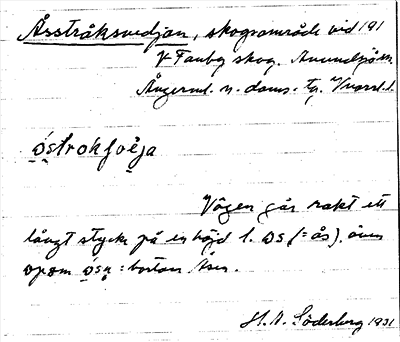 Åsstråksvedjan, skogsområde vid 191
V Fanby skog. Anundsjö sn.
Ångerml. n. doms. tg. V norrl. l.
óstrokſvèja
Vägen går rakt ett
långt stycke på en höjd l. ɔs (= ås), även
åsn : bortom Åsen.
H. A. Söderberg 1931